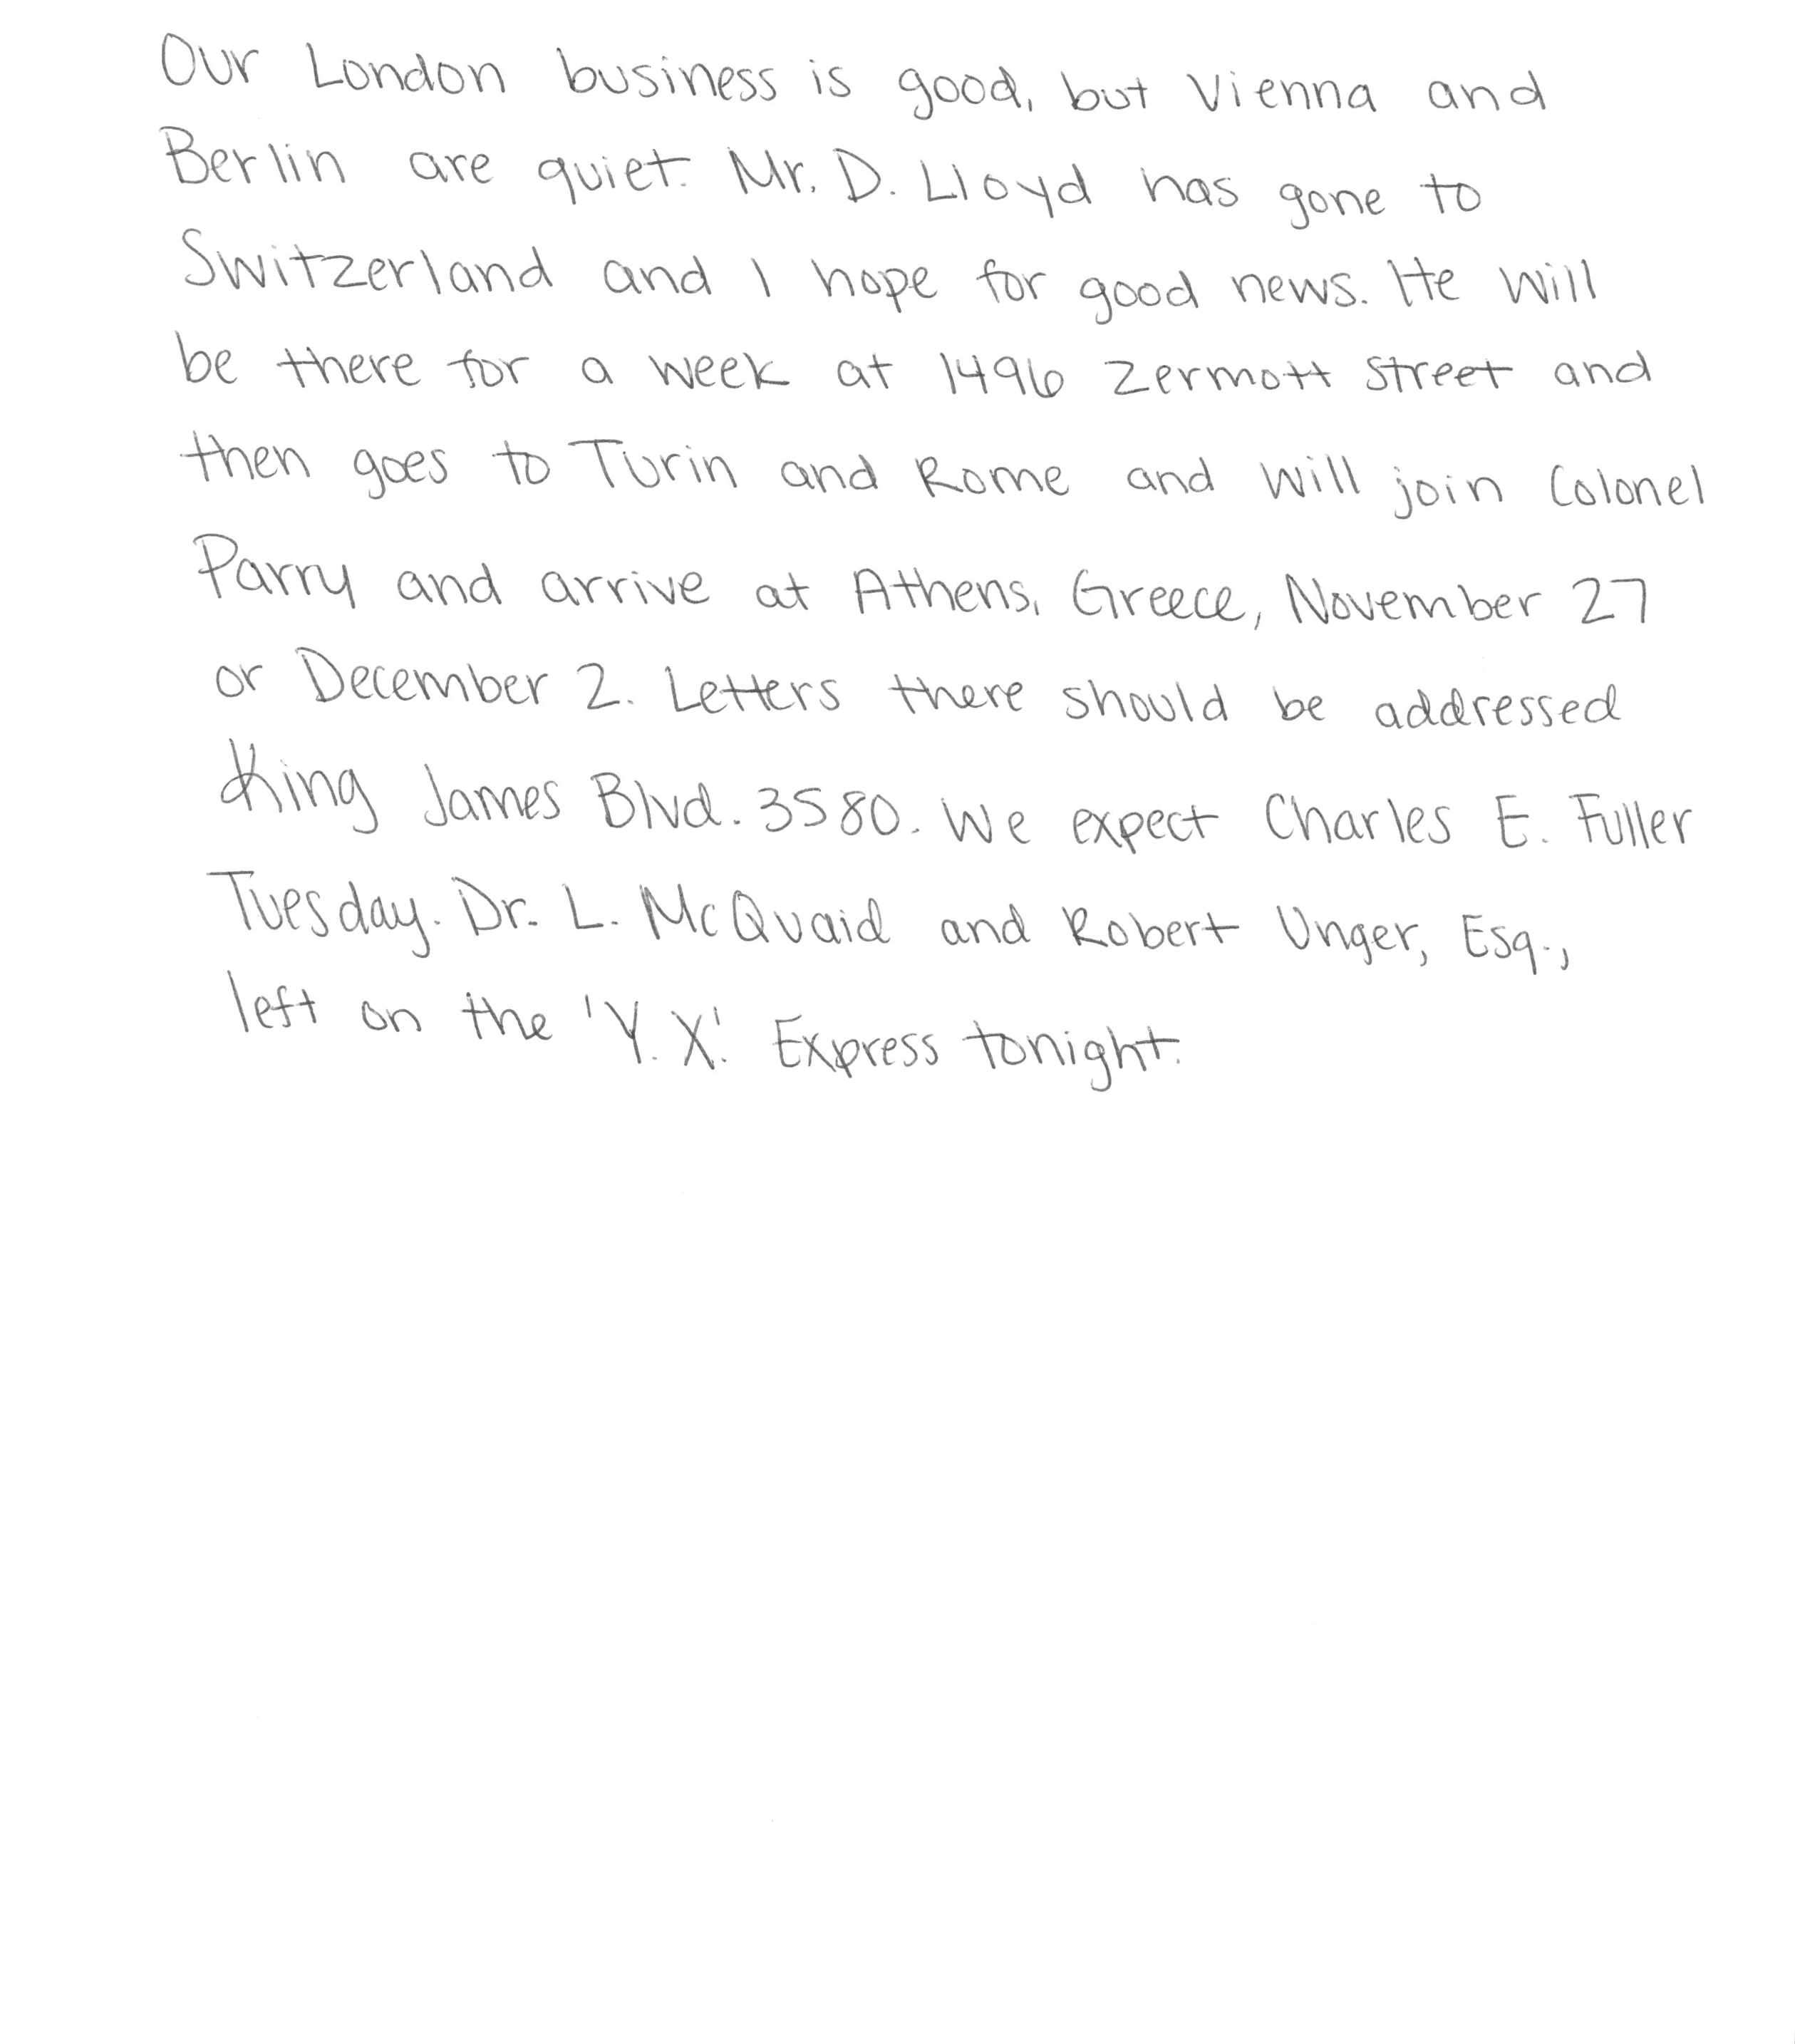 Our London business is good, but Vienna and
Berlin are quiet. Mr. D. Lloyd has gone to
Switzerland and I hope for good news. He will
be there for a week at 1496 Zermott street and
then goes to Turin and Rome and will join Colonel
Parry and arrive at Athens, Greece, November 27
or December 2. Letters there should be addressed
King James Blvd. 3580. We expect Charles E. Fuller
Tuesday. Dr. L. McQuaid and Robert Unger, Esq.,
left on the 'Y.X.' Express tonight.